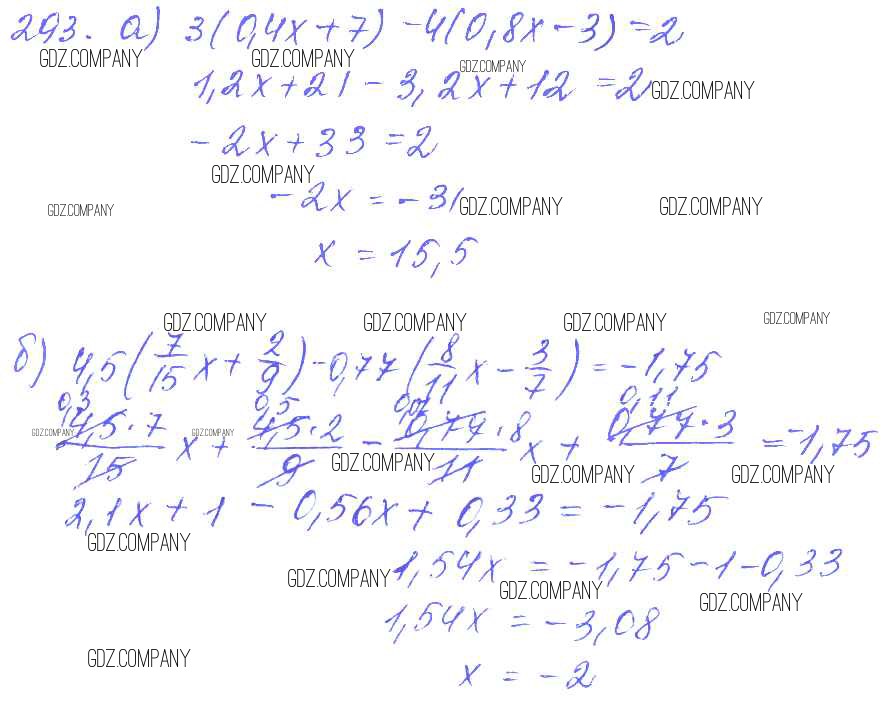 293. а) 3(0,4x+7) -4(0,8x-3)=2
GDZ.COMPANY GDZ.COMPANY GDZ.COMPANY
1,2x+21-3,2x+12=2 GDZ.COMPANY
-2x+33=2
GDZ.COMPANY
-2x=-31
GDZ.COMPANY GDZ.COMPANY GDZ.COMPANY
x=15,5
GDZ.COMPANY GDZ.COMPANY GDZ.COMPANY GDZ.COMPANY
б) 4,5(7/15 x+2/9)-0,77(8/11 x-3/7)=-1,75
0,3 0,5 0,07 0,11
4,5·7/15 x+4,5·2/9-0,77·8/11 x+0,77·3/7=-1,75
GDZ.COMPANY GDZ.COMPANY GDZ.COMPANY GDZ.COMPANY GDZ.COMPANY
2,1x+1-0,56x+0,33=-1,75
GDZ.COMPANY
1,54x=-1,75-1-0,33
GDZ.COMPANY GDZ.COMPANY GDZ.COMPANY
1,54x=-3,08
GDZ.COMPANY
x=-2